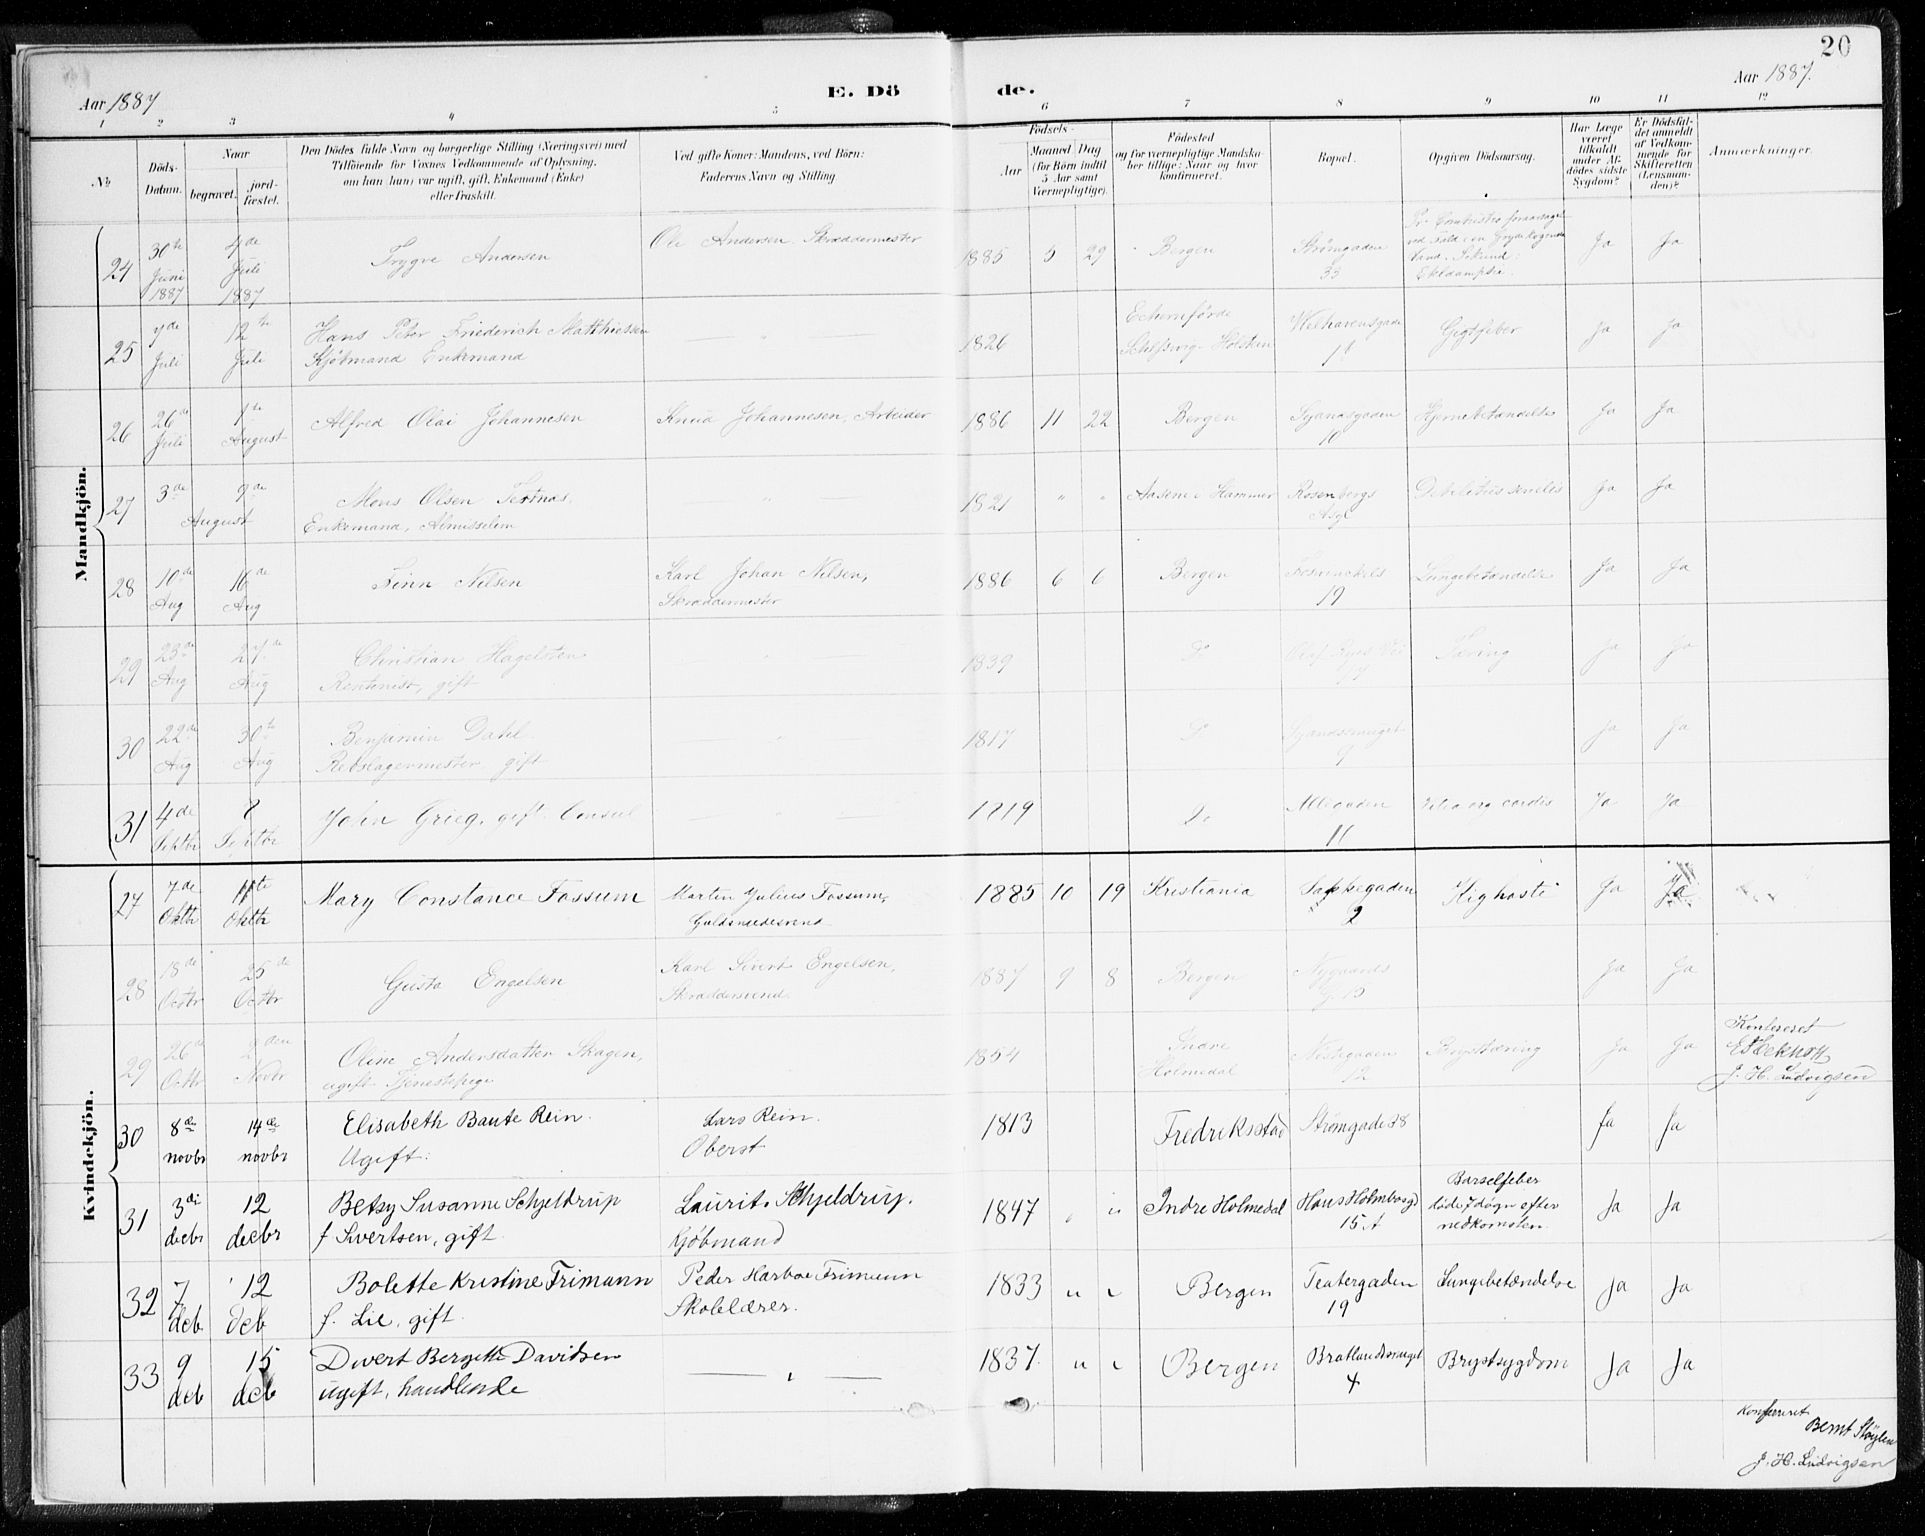 20
Aar 1887
E. Dö
de.
Aar 1887.
1 2 3 4 5 6 7 8 9 10 11 12
No
Döds-Datum.
Naar
begravet.
jord-fæstet.
Den Dödes fulde Navn og borgerlige Stilling (Næringsvei) med
Tilföiende for Voxnes Vedkommende af Oplysning,
om han (hun) var ugift, gift, Enkemand (Enke)
eller fraskilt.
Ved gifte Koner: Mandens, ved Börn:
Faderens Navn og Stilling.
Födsels-
Aar
Maaned Dag
(for Börn indtil
5 Aar samt
Værnepligtige).
Födested
og for værnepligtige Mandska-
ber tillige: Naar og hvor
konfirmeret.
Bopæl.
Opgiven Dödsaarsag.
Har Læge
været
tilkaldt
under Af-
dödes sidste
Sygdom?
Er Dödsfal-
det anmeldt
af Vedkom-
mende for
Skifteretten
(Lensman-
den)?
Anmærkninger.
Mandkjön.
24 30te Juni 1887 4de Juli 1887 Trygve Andersen Ole Andersen Skræddermester 1885 5 29 Bergen Strømgaden 33 Ja Ja
25 7de Juli 12te Juli Hans Peter Friederich Matthiessen
Kjøbmand Enkemand 1826 Echernförde
Schlesswig-Holsten Welhavensgade Gigtfeber Ja Ja
26 26de Juli 1te August Alfred Olai Johannesen Knud Johannesen, Arbeider 1886 11 22 Bergen 10 Hjernebetændelse Ja Ja
27 3de 9de August Mons Olsen Tertnæs,
Enkemand, Almisselem 1821 " " Aasene i Hammer Rosenbergs Asyl Debilitas senilis Ja Ja
28 10de Aug 16de Aug Finn Nilsen Karl Johan Nilsen,
Skræddermester 1886 6 6 Bergen 19 Lungebetændelse Ja Ja
29 23de Aug 27de Aug Christian Hagelsten
Rentenist, gift 1839 Do Tæring Ja Ja
30 22de Aug 30te Aug Benjamin Dahl
Rebslagermester, gift 1817 Do 9 Ja Ja
31 4de Septbr 8 Septbr John Grieg, gift Consul 1819 Do Alleaaden 11 Vitia org cordis Ja Ja
Kvindekjön.
27 7de Oktbr 11te Oktbr Mary Constance Fossum Marten Julius Fossum,
Guldsmedesvend 1885 10 19 Kristiania 2 Kighoste Ja Ja
28 18de Octbr 25de Octbr Gusta Engelsen Karl Sivert Engelsen,
Skræddersvend. 1887 9 8 Bergen Nygaards Ja Ja
29 26de Octbr 2den Novbr Oline Andersdatter Skagen,
ugift Tjenestepige 1854 Indre
Holmedal Nøstegaden 12 Brysttæring Ja Ja
Konfereret
J. H. Ludvigsen
30 8de novbr 14de novbr Elisabeth Baute Rein.
Ugift. Lars Rein.
Oberst 1813 Fredriksstad Strømgade 38 Ja Ja
31 3di decbr 12 decbr Betzy Susanne Schjeldrup
f Sivertsen, gift Laurits Schjeldrup.
Kjöbmand 1847 " " Indre Holmedal Hans Holmbosgd
15 A Barselfeber
døde 7 døgn efter
nedkomsten. Ja Ja
32 7 deb 12 deb Bolette Kristine Frimann
f. Lie, gift. Peder Harboe Frimann
Skolelærer. 1833 " " Bergen Teatergaden
19 Lungebetændelse Ja Ja
33 9 deb 15 deb Divert Bergette Davidsen
ugift, handlende 1837. " " Bergen Bratlandsmuget
4 Brystsygdom Ja Ja
Konfereret
Bernt Støylen
J. H. Ludvigsen